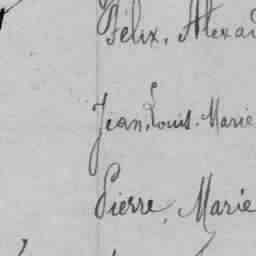 Félix, Alexa
Jean, Louis, Marie
Pierre, Marie